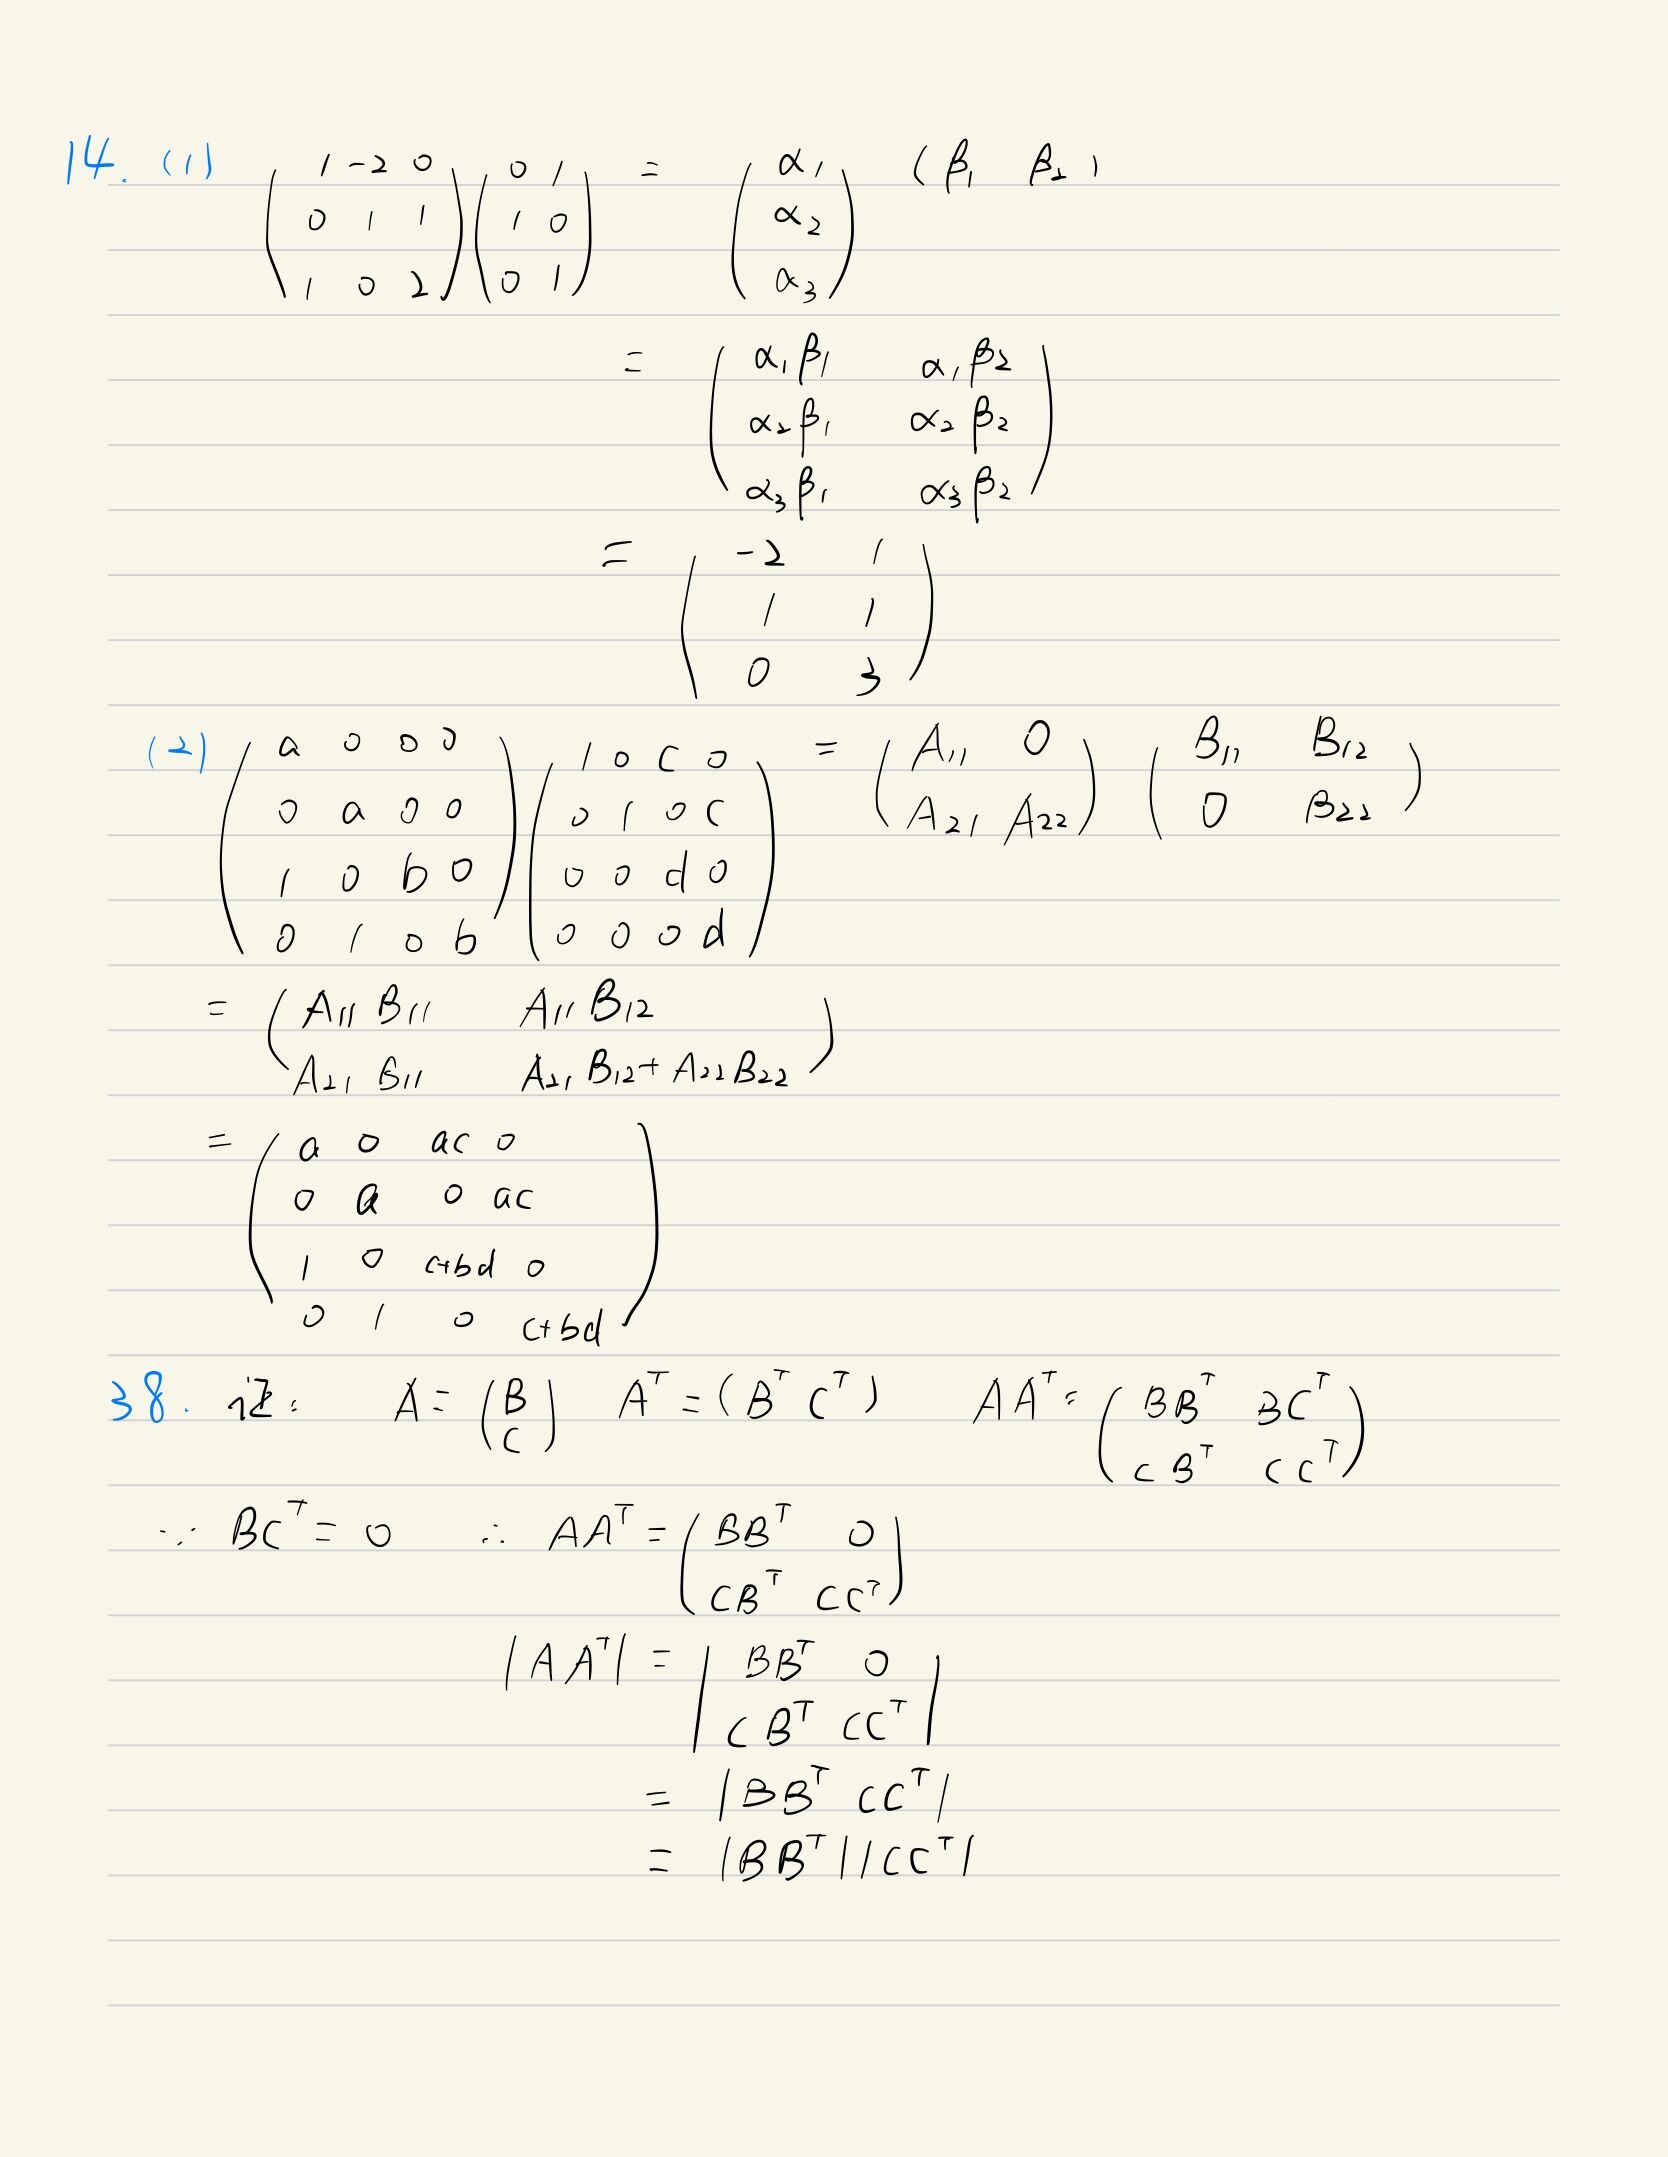 14. (1) ( 1 -2 0 ) ( 0 1 ) = ( α₁ ) ( β₁ β₂ )
( 0 1 1 ) ( 1 0 ) ( α₂ )
( 1 0 2 ) ( 0 1 ) ( α₃ )
= ( α₁β₁ α₁β₂ )
( α₂β₁ α₂β₂ )
( α₃β₁ α₃β₂ )
= ( -2 1 )
( 1 1 )
( 0 3 )
(2) ( a 0 0 0 ) ( 1 0 c 0 ) = ( A₁₁ 0 ) ( B₁₁ B₁₂ )
( 0 a 0 0 ) ( 0 1 0 c ) ( A₂₁ A₂₂ ) ( 0 B₂₂ )
( 1 0 b 0 ) ( 0 0 d 0 )
( 0 1 0 b ) ( 0 0 0 d )
= ( A₁₁B₁₁ A₁₁B₁₂ )
( A₂₁B₁₁ A₂₁B₁₂+A₂₂B₂₂ )
= ( a 0 ac 0 )
( 0 a 0 ac )
( 1 0 c+bd 0 )
( 0 1 0 c+bd )
38. 证: A = ( B ) Aᵀ = ( Bᵀ Cᵀ ) AAᵀ = ( BBᵀ BCᵀ )
( C ) ( CBᵀ CCᵀ )
∵ BCᵀ = 0 ∴ AAᵀ = ( BBᵀ 0 )
( CBᵀ CCᵀ )
|AAᵀ| = | BBᵀ 0 |
| CBᵀ CCᵀ |
= |BBᵀ CCᵀ|
= |BBᵀ||CCᵀ|